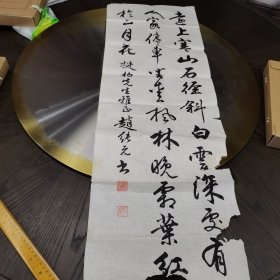 遠上寒山石徑斜白雲深處有
人家停車坐愛楓林晚霜葉紅
於二月花 先生雅正 趙 元書